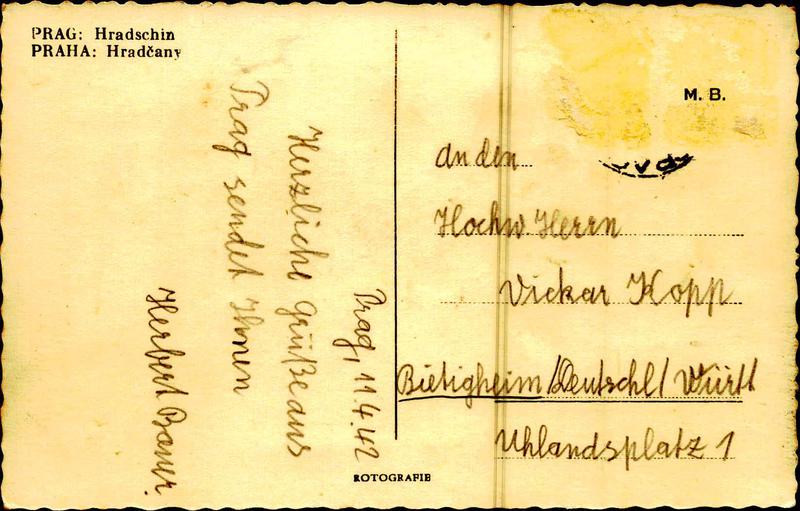 PRAG: Hradschin
PRAHA: Hradčany
M. B.
Prag, 11.4.42
Herzliche Grüße aus
Prag sendet Ihnen
Herbert Bauer.
An den
Hochw Herrn
Vickar Kopp
Bietigheim /Deutschl/ Württ
Uhlandsplatz 1
ROTOGRAFIE